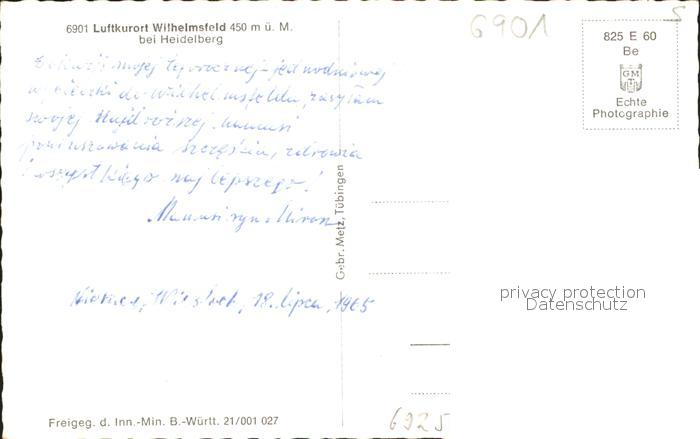 6901 Luftkurort Wilhelmsfeld 450 m ü. M.
bei Heidelberg
6901
S
825 E 60
Be
GMT
Echte
Photographie
mojej tegorocznej - jednodniowej
wycieczki do Wilhelmsfeldu, zasyłam
swojej Najdroższej Mamusi
powinszowania szczęścia, zdrowia
i wszystkiego najlepszego!
Mamusi syn Miron
Gebr. Metz, Tübingen
Niemcy, Wiesloch, 18. lipca, 1965
privacy protection
Datenschutz
Freigeg. d. Inn.-Min. B.-Württ. 21/001 027
6925